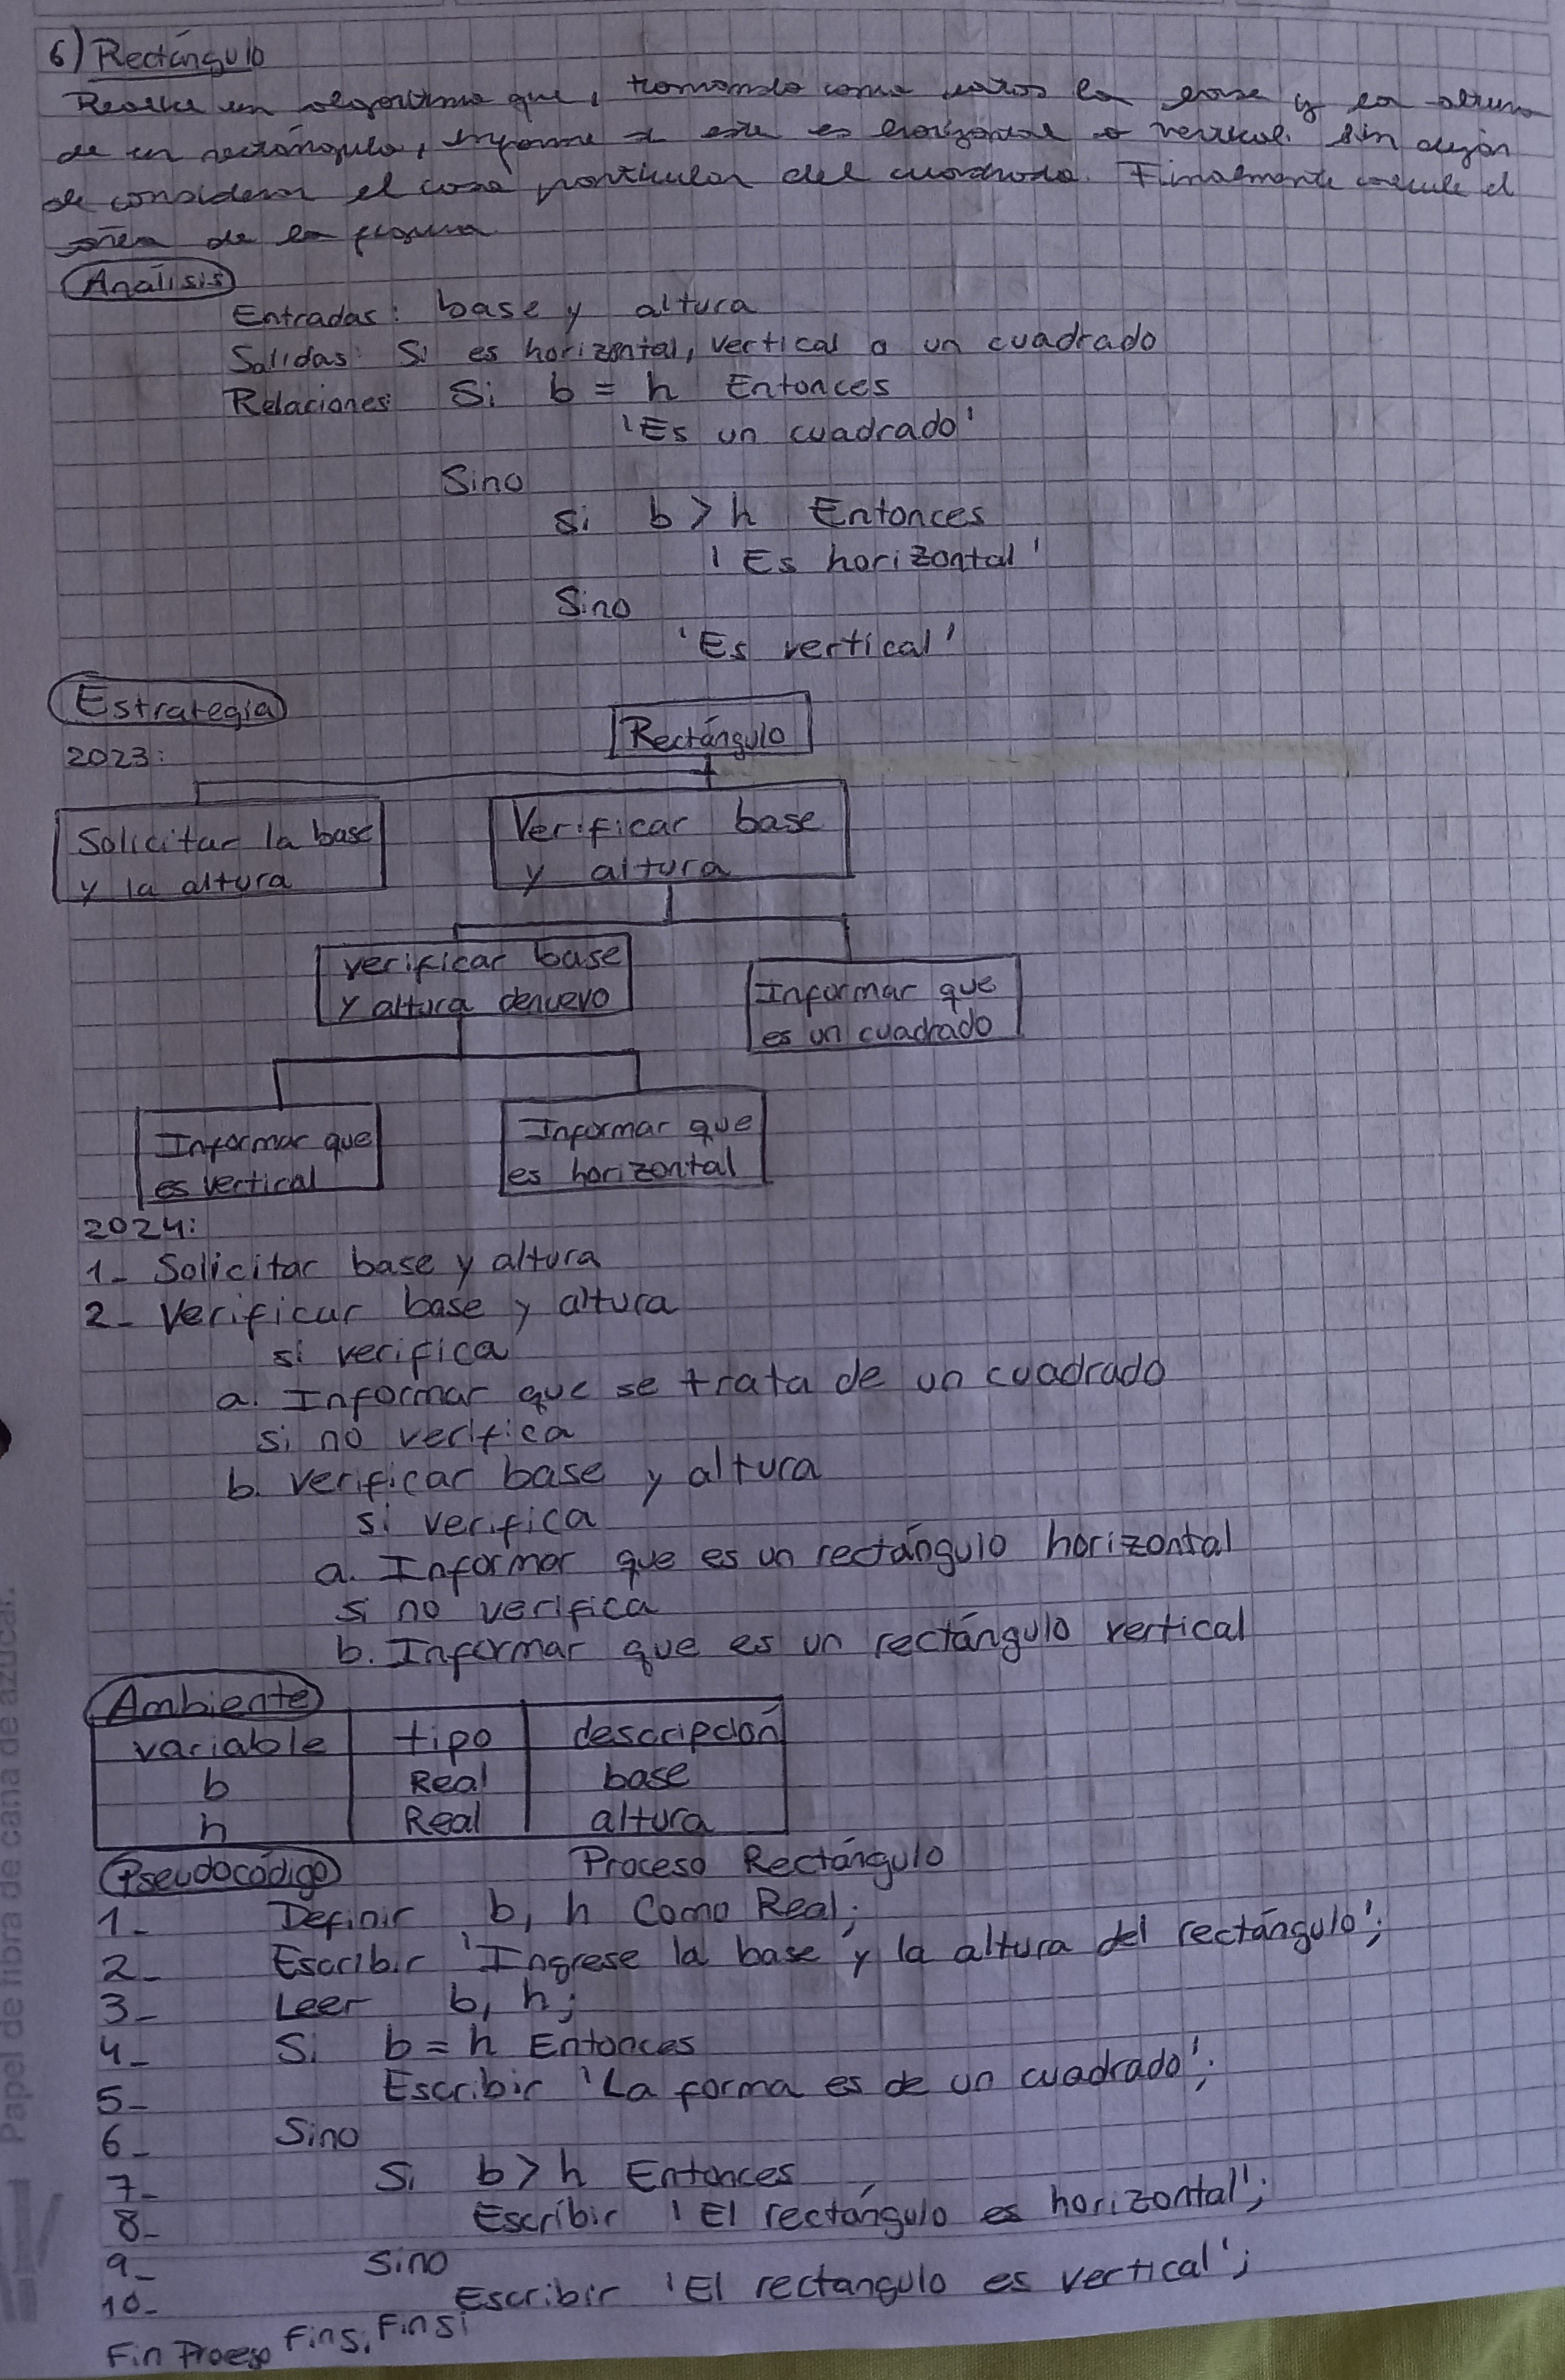 6) Rectángulo
Realice un algoritmo que, tomando como datos la base y la altura
de un rectángulo, informe si este es horizontal o vertical. Sin dejar
de considerar el caso particular del cuadrado. Finalmente calcule el
área de la figura.
Análisis
Entradas: base y altura
Salidas: Si es horizontal, vertical o un cuadrado
Relaciones: Si b = h Entonces
'Es un cuadrado'
Sino
Si b > h Entonces
'Es horizontal'
Sino
'Es vertical'
Estrategia
2023:
Rectángulo
Solicitar la base
y la altura
Verificar base
y altura
verificar base
y altura denuevo
Informar que
es un cuadrado
Informar que
es vertical
Informar que
es horizontal
2024:
1- Solicitar base y altura
2- Verificar base y altura
si verifica
a. Informar que se trata de un cuadrado
si no verifica
b. verificar base y altura
si verifica
a. Informar que es un rectángulo horizontal
si no verifica
b. Informar que es un rectángulo vertical
Ambiente
variable tipo descripción
b Real base
h Real altura
Pseudocódigo Proceso Rectángulo
1- Definir b, h Como Real;
2- Escribir 'Ingrese la base y la altura del rectángulo';
3- Leer b, h;
4- Si b = h Entonces
5- Escribir 'La forma es de un cuadrado';
6- Sino
7- Si b > h Entonces
8- Escribir 'El rectángulo es horizontal';
9- Sino
10- Escribir 'El rectangulo es vertical';
Fin Proceso FinSi FinSi
Papel de fibra de caña de azúcar.